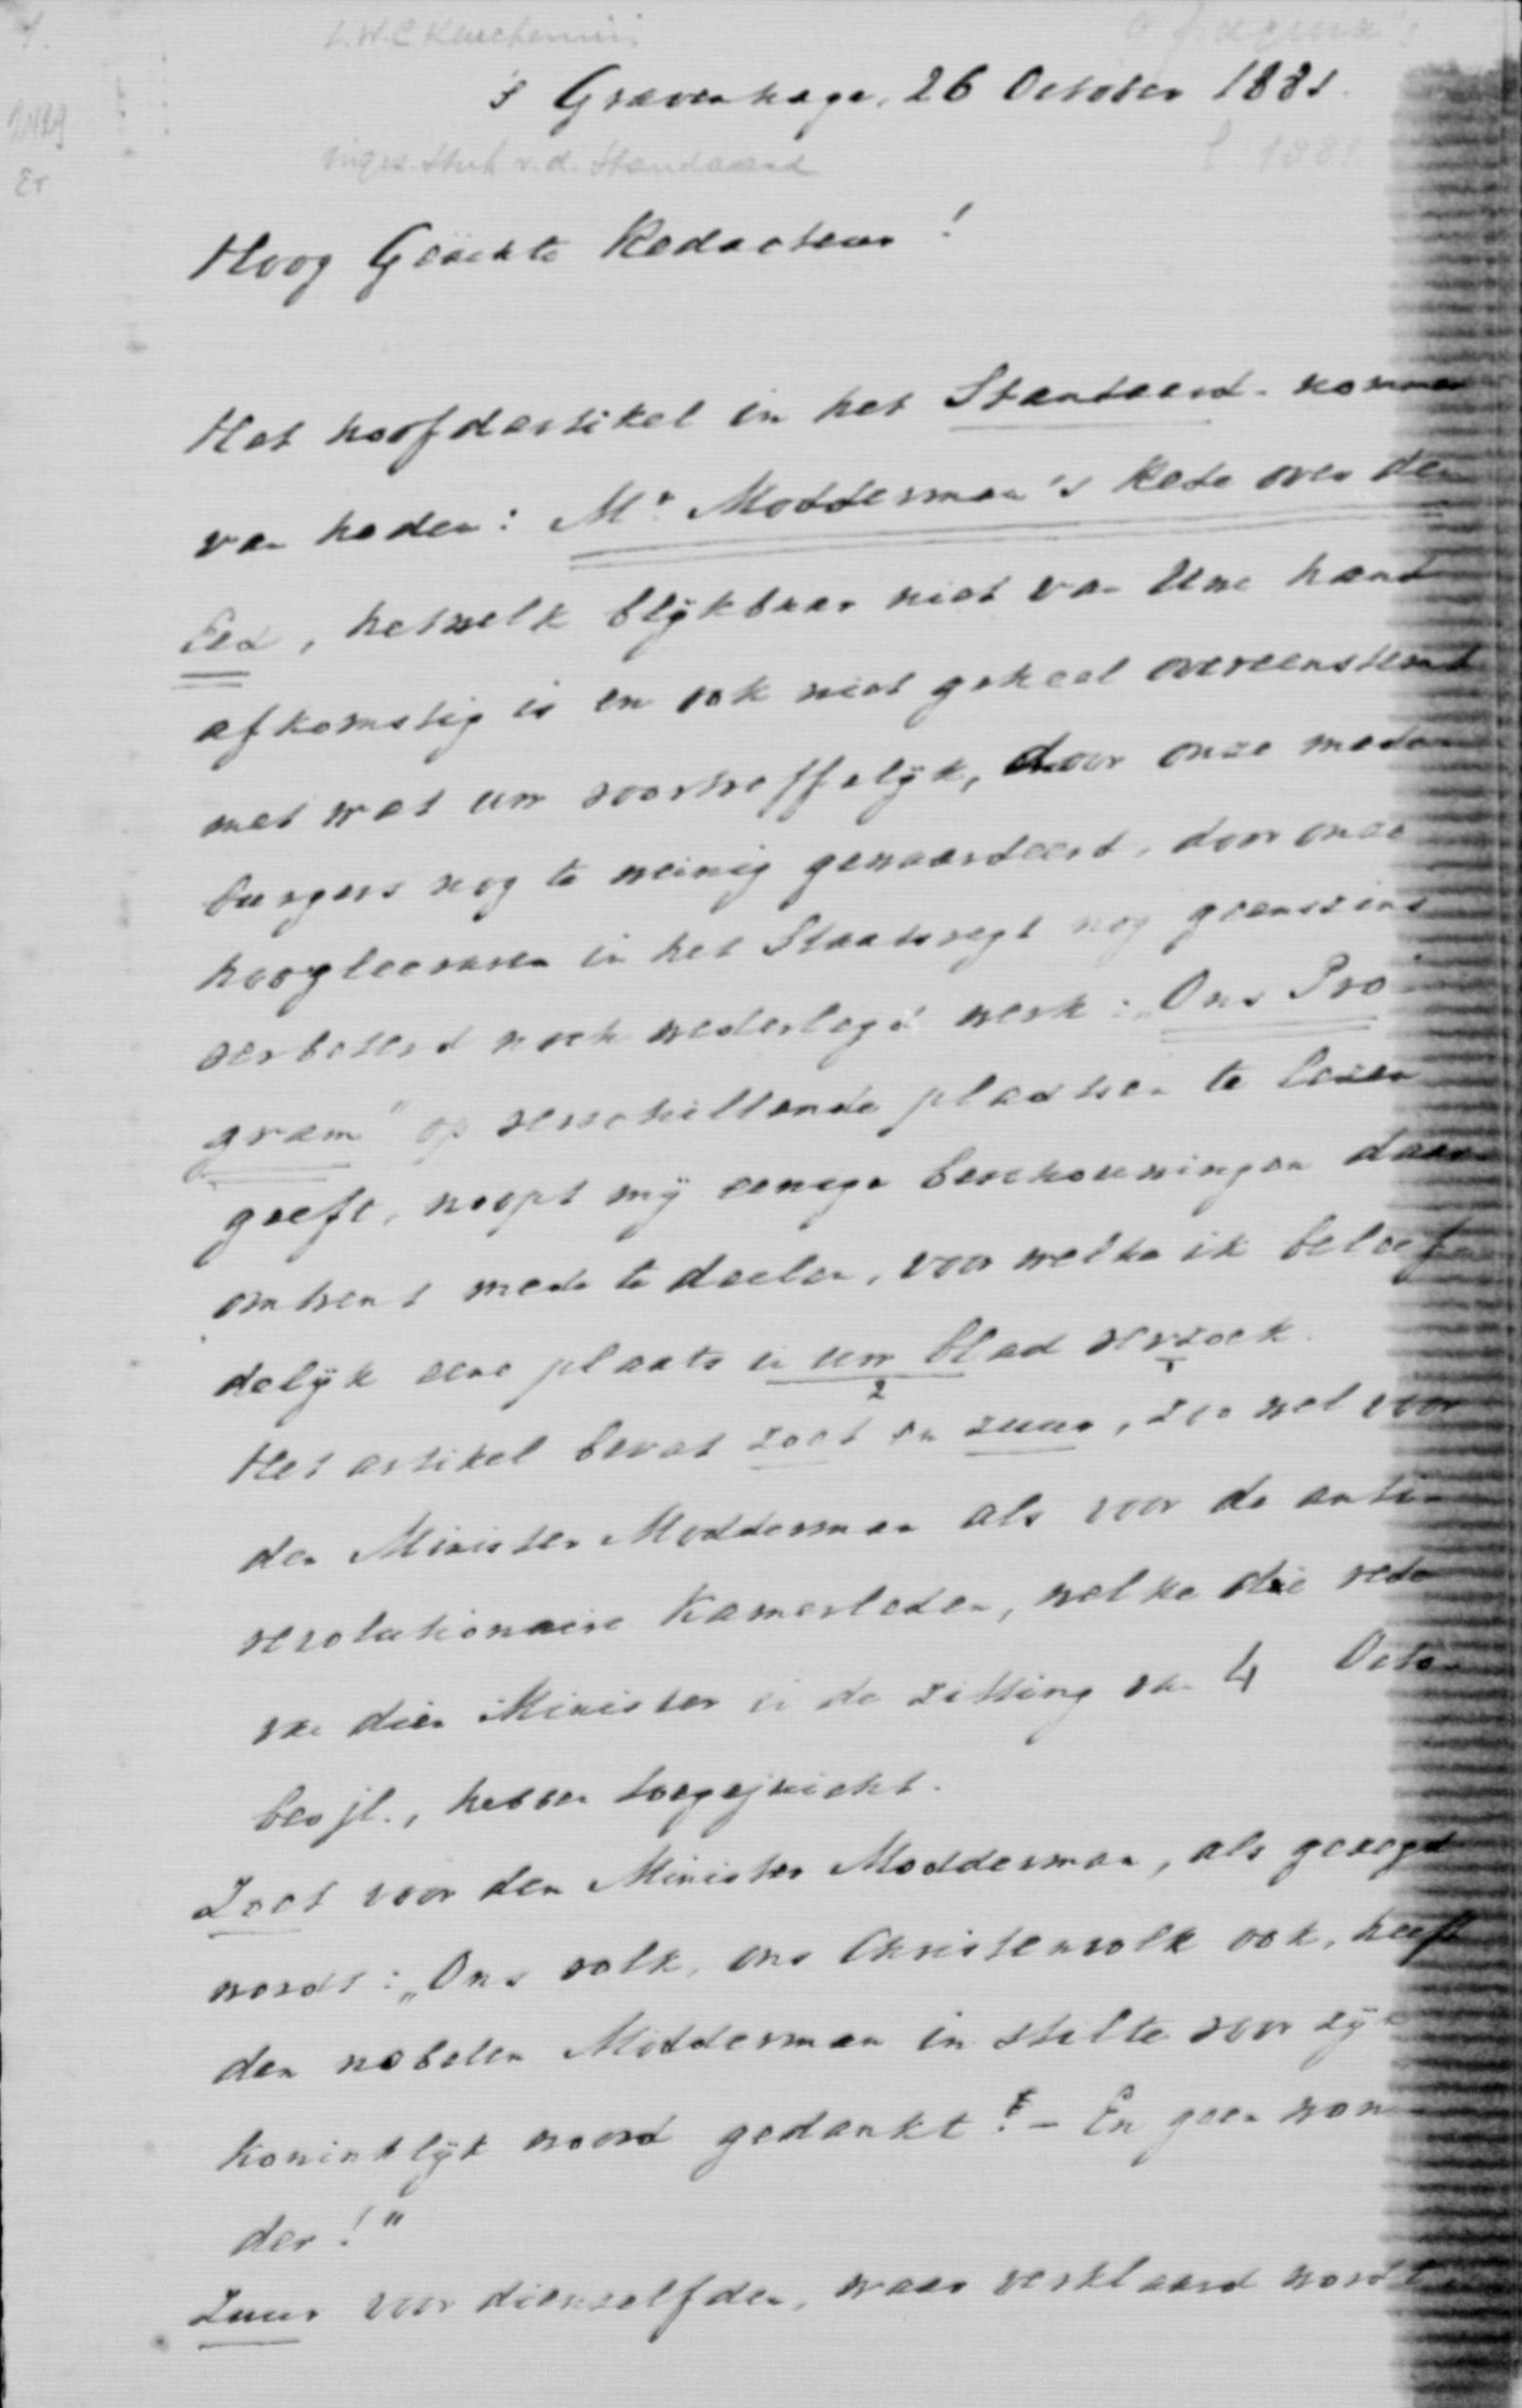 1.
L.W.C. Keuchenius
's Gravenhage, 26 October 1881.
2429
Er
inges. stuk v.d. Standaard
1881
Hoog Geächte Redacteur!
Het hoofdartikel in het Standaard-nommer
van heden: Mr. Modderman's Rede over den
Eed, hetwelk blijkbaar niet van Uwe hand
afkomstig is en ook niet geheel overeenstemt
met wat uw voortreffelijk, door onze mede
burgers nog te weinig gewaardeerd, door onze
hoogleeraren in het Staatsregt nog geenszins
verbeterd noch wederlegd werk: "Ons Pro-
gram" op verschillende plaatsen te lezen
geeft, noopt mij eenige beschouwingen daar-
omtrent mede te deelen, voor welke ik beleef-
delijk eene plaats in uw blad verzoek.
2 1
Het artikel bevat zoet en zuur, zoo wel voor
den Minister Modderman als voor de anti-
revolutionaire Kamerleden, welke die rede
van dien Minister in de zitting van 4 Octo-
ber jl., hebben toegejuicht.
Zoet voor den Minister Modderman, als gezegd
wordt: „Ons volk, ons Christenvolk ook, heeft
den nobelen Modderman in stilte voor zijn
koninklijk woord gedankt! – En geen won
der!"
Zuur voor dienzelfden, waar verklaard wordt